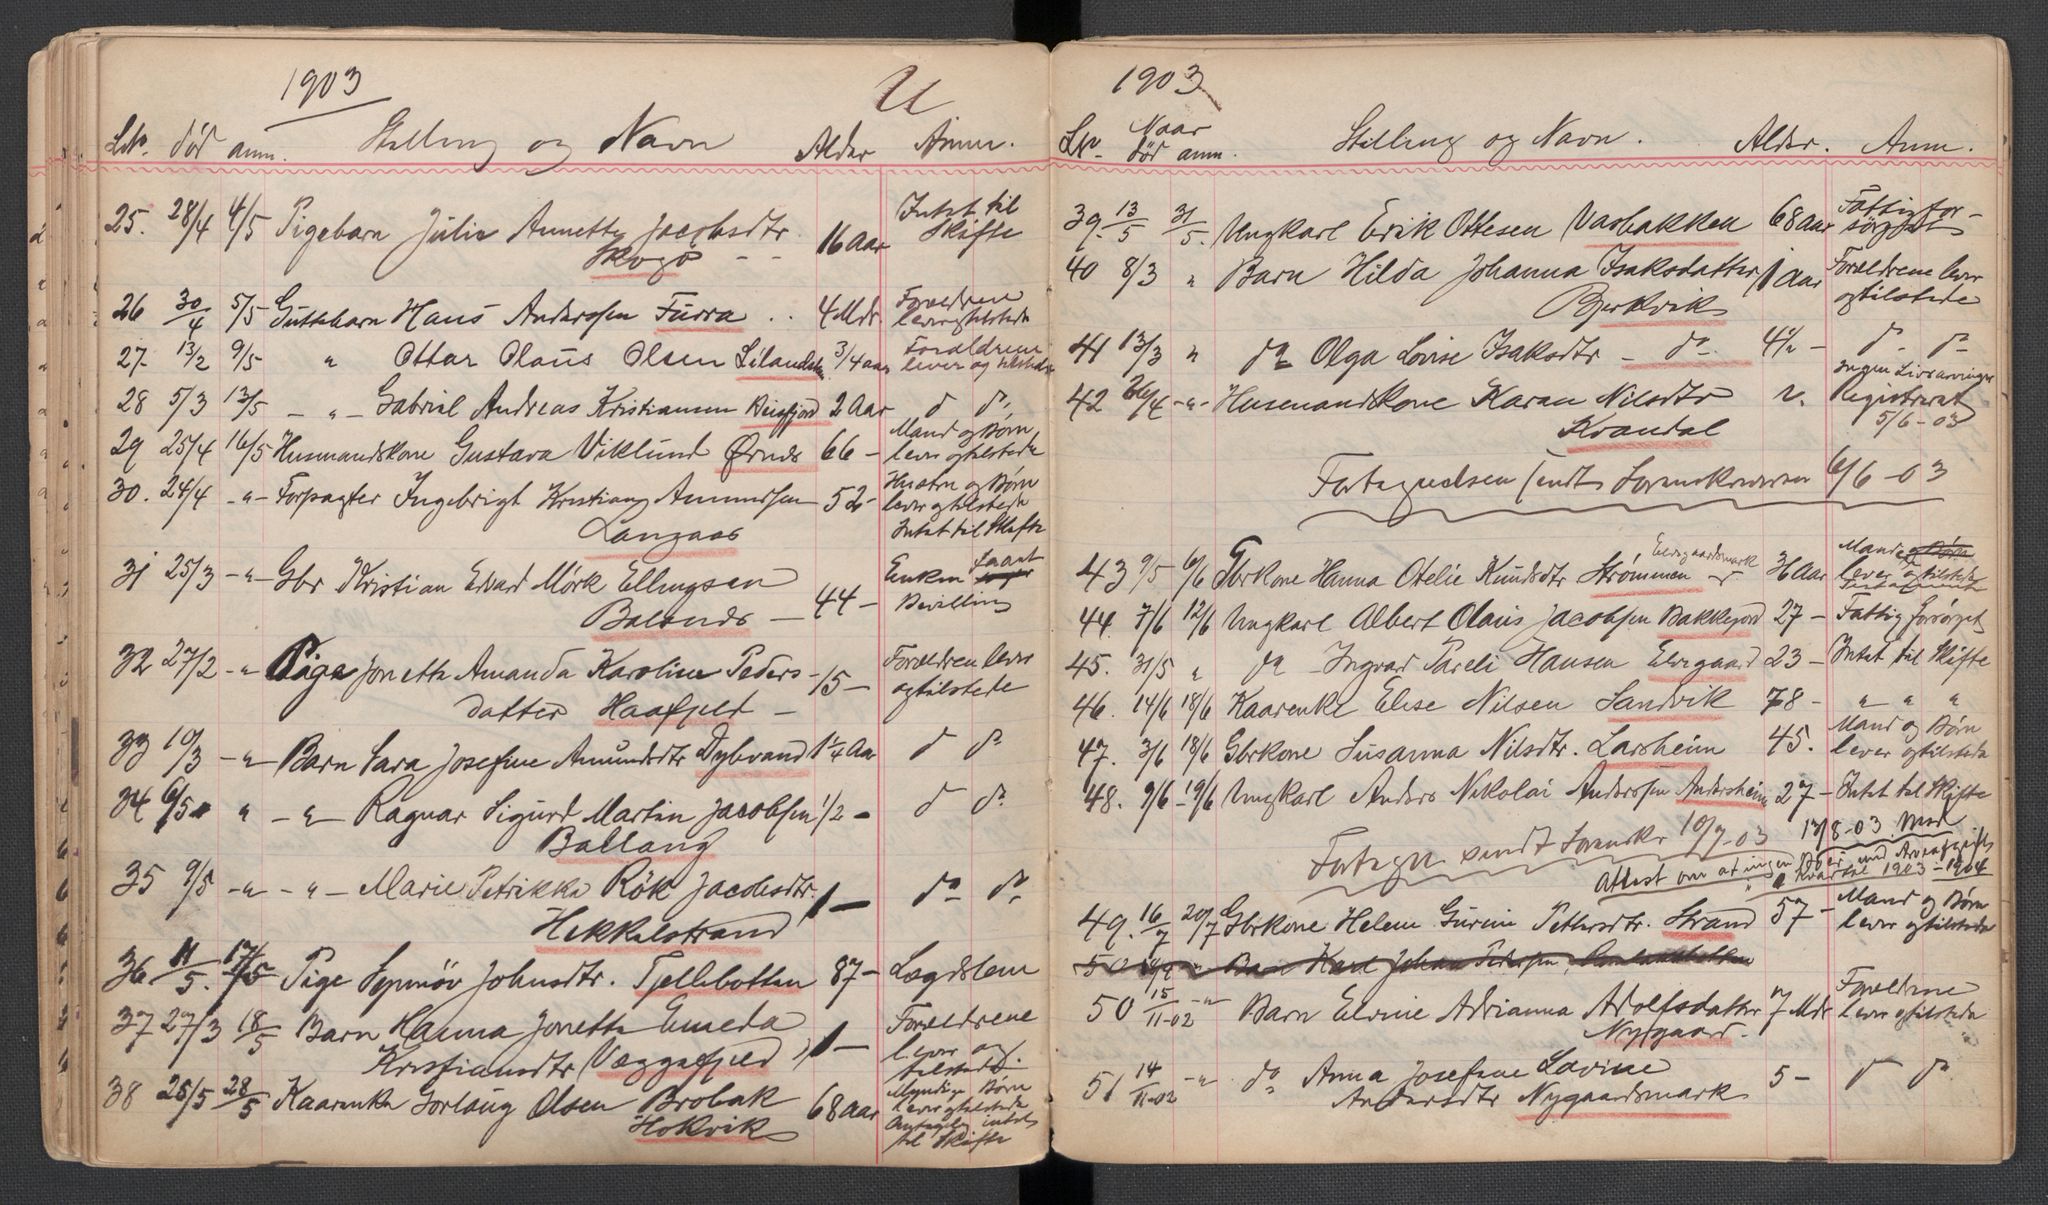 1903
U
LNo. død anm. Stilling og Navn Alder Anm.
25. 28/4 4/5 Pigebarn Julie Annette Jacobsdtr. 16 Aar Intet til
Skogø - - Skifte
26 30/4 5/5 Guttebarn Hans Anderssen Furra .. 4 Mdr Forældrene
lever og tilstede
27. 13/2 9/5 " Ottar Olaus Olsen Lilandsh. 3/4 aar Forældrene
lever og tilstede
28 5/3 13/5 - " - Gabriel Andreas Kristiansen Beisfjord 2 Aar do do
29 25/4 16/5 Husmandskone Gustava Viklund Ørnes 66 - Mand og Børn
lever og tilstede
30. 24/4 -"- Forpagter Ingebrigt Kristian Amundsen 52 - Hustru og Børn
lever og tilstede
Langaas Intet til Skifte
31 25/3 -"- Gbr Kristian Edvard Mørk Ellingsen 44 - Enken faaet
Balsnes - Bevilling
32 27/2 -"- Pige Jonette Amanda Karoline Peders- 15 - Forældren lever
datter Haafjeld - og tilstede
33 10/3 -"- Barn Sara Josefine Amundsdtr Dybvand 1 1/4 Aar do do
34 6/5 " -"- Ragnar Sigurd Martin Jacobsen 1/2 - do do
Ballang
35 9/5 -"- -"- Marie Petrikke Røk Jacobsdtr. 1 - do do
Hekkelstrand
36 11/5. 17/5 Pige Synnøv Johnsdtr. Tjellebotten 87 - Lægdslem
37 27/3 18/5 Barn Hanna Jonette Emeda 1 - Forældrene
Kristiansdtr (Væggefjeld) lever og
tilstede.
38 25/5 28/5 Kaarenke Gorlaug Olsen Brobak 68 aar Myndige Børn
Hokvik lever og tilstede
Antagelig intet
til Skifte
1903
LNr Naar
død anm. Stilling og Navn. Alder. Anm.
39. 13/5 31/5. Ungkarl Erik Ottesen Vasbakken 68 aar Fattigfor-
sørget
40 8/3 " Barn Hilda Johanna Isaksdatter 1 aar Forældrene lever
Bjerkvik og tilstede
41 13/3 " do Olga Lovise Isaksdtr - do. 4 1/2 - do do
42 26/4 -"- Husmandskone Karen Nilsdtr Ingen Livsarvinger
Kvandal Registreret
5/6-03
Fortegnelsen sendt Sorenskriveren 6/6-03
43 9/5 6/6 Gbrkone Hanna Otelie Knudsdtr Strømmen Elvegaardsmark 36 Aar Mand og Børn
lever og tilstede
44. 7/6 12/6 Ungkarl Albert Olaus Jacobsen Bakkejord 27 - Fattig forsørget
45. 31/5 " do - Ingvar Pareli Hansen Elvegaard 23 - Intet til Skifte
46. 14/6 18/6 Kaarenke Elise Nilsen Sandvik 78 - " " "
47. 3/6 18/6 Gbrkone Susanna Nilsdtr. Larsheim 45. Mand og Børn
lever og tilstede
48. 9/6 - 19/6 Ungkarl Anders Nikolai Anderssen Andersheim 27 - Intet til Skifte
Fortegn. sendt Sorenskr 10/7-03 13/8-03 med
Attest om at ingen Boer med Arveafgift
Kvartal 1903-1904
49. 16/7 20/7 Gbrkone Helene Gurine Pettersdtr. Strand 57 - Mand og Børn
lever og tilstede
50 Barn Karl Johan Pedersen
50 15/11-02 -"- Barn Elvine Adrianna Adolfsdatter 7 Mdr Forældrene
Nygaard. lever og tilstede
51 14/11-02 -"- do Anna Josefine Lavine 5 - do do
Andersdtr Nygaardsmark